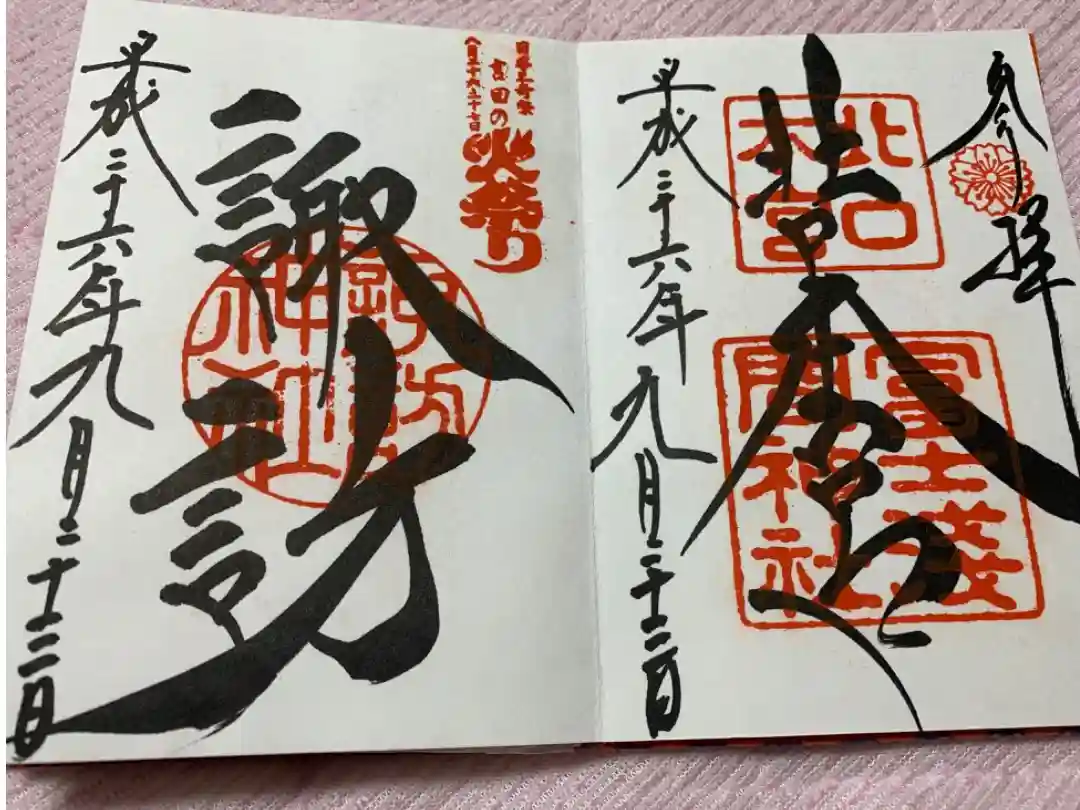 奉拝
北口本宮
北口
本宮
冨士浅
間神社
平成二十六年九月二十二日
日本三奇祭
吉田の
火祭り
八月二十六二十七日
諏訪
諏訪
神社
平成二十六年九月二十二日